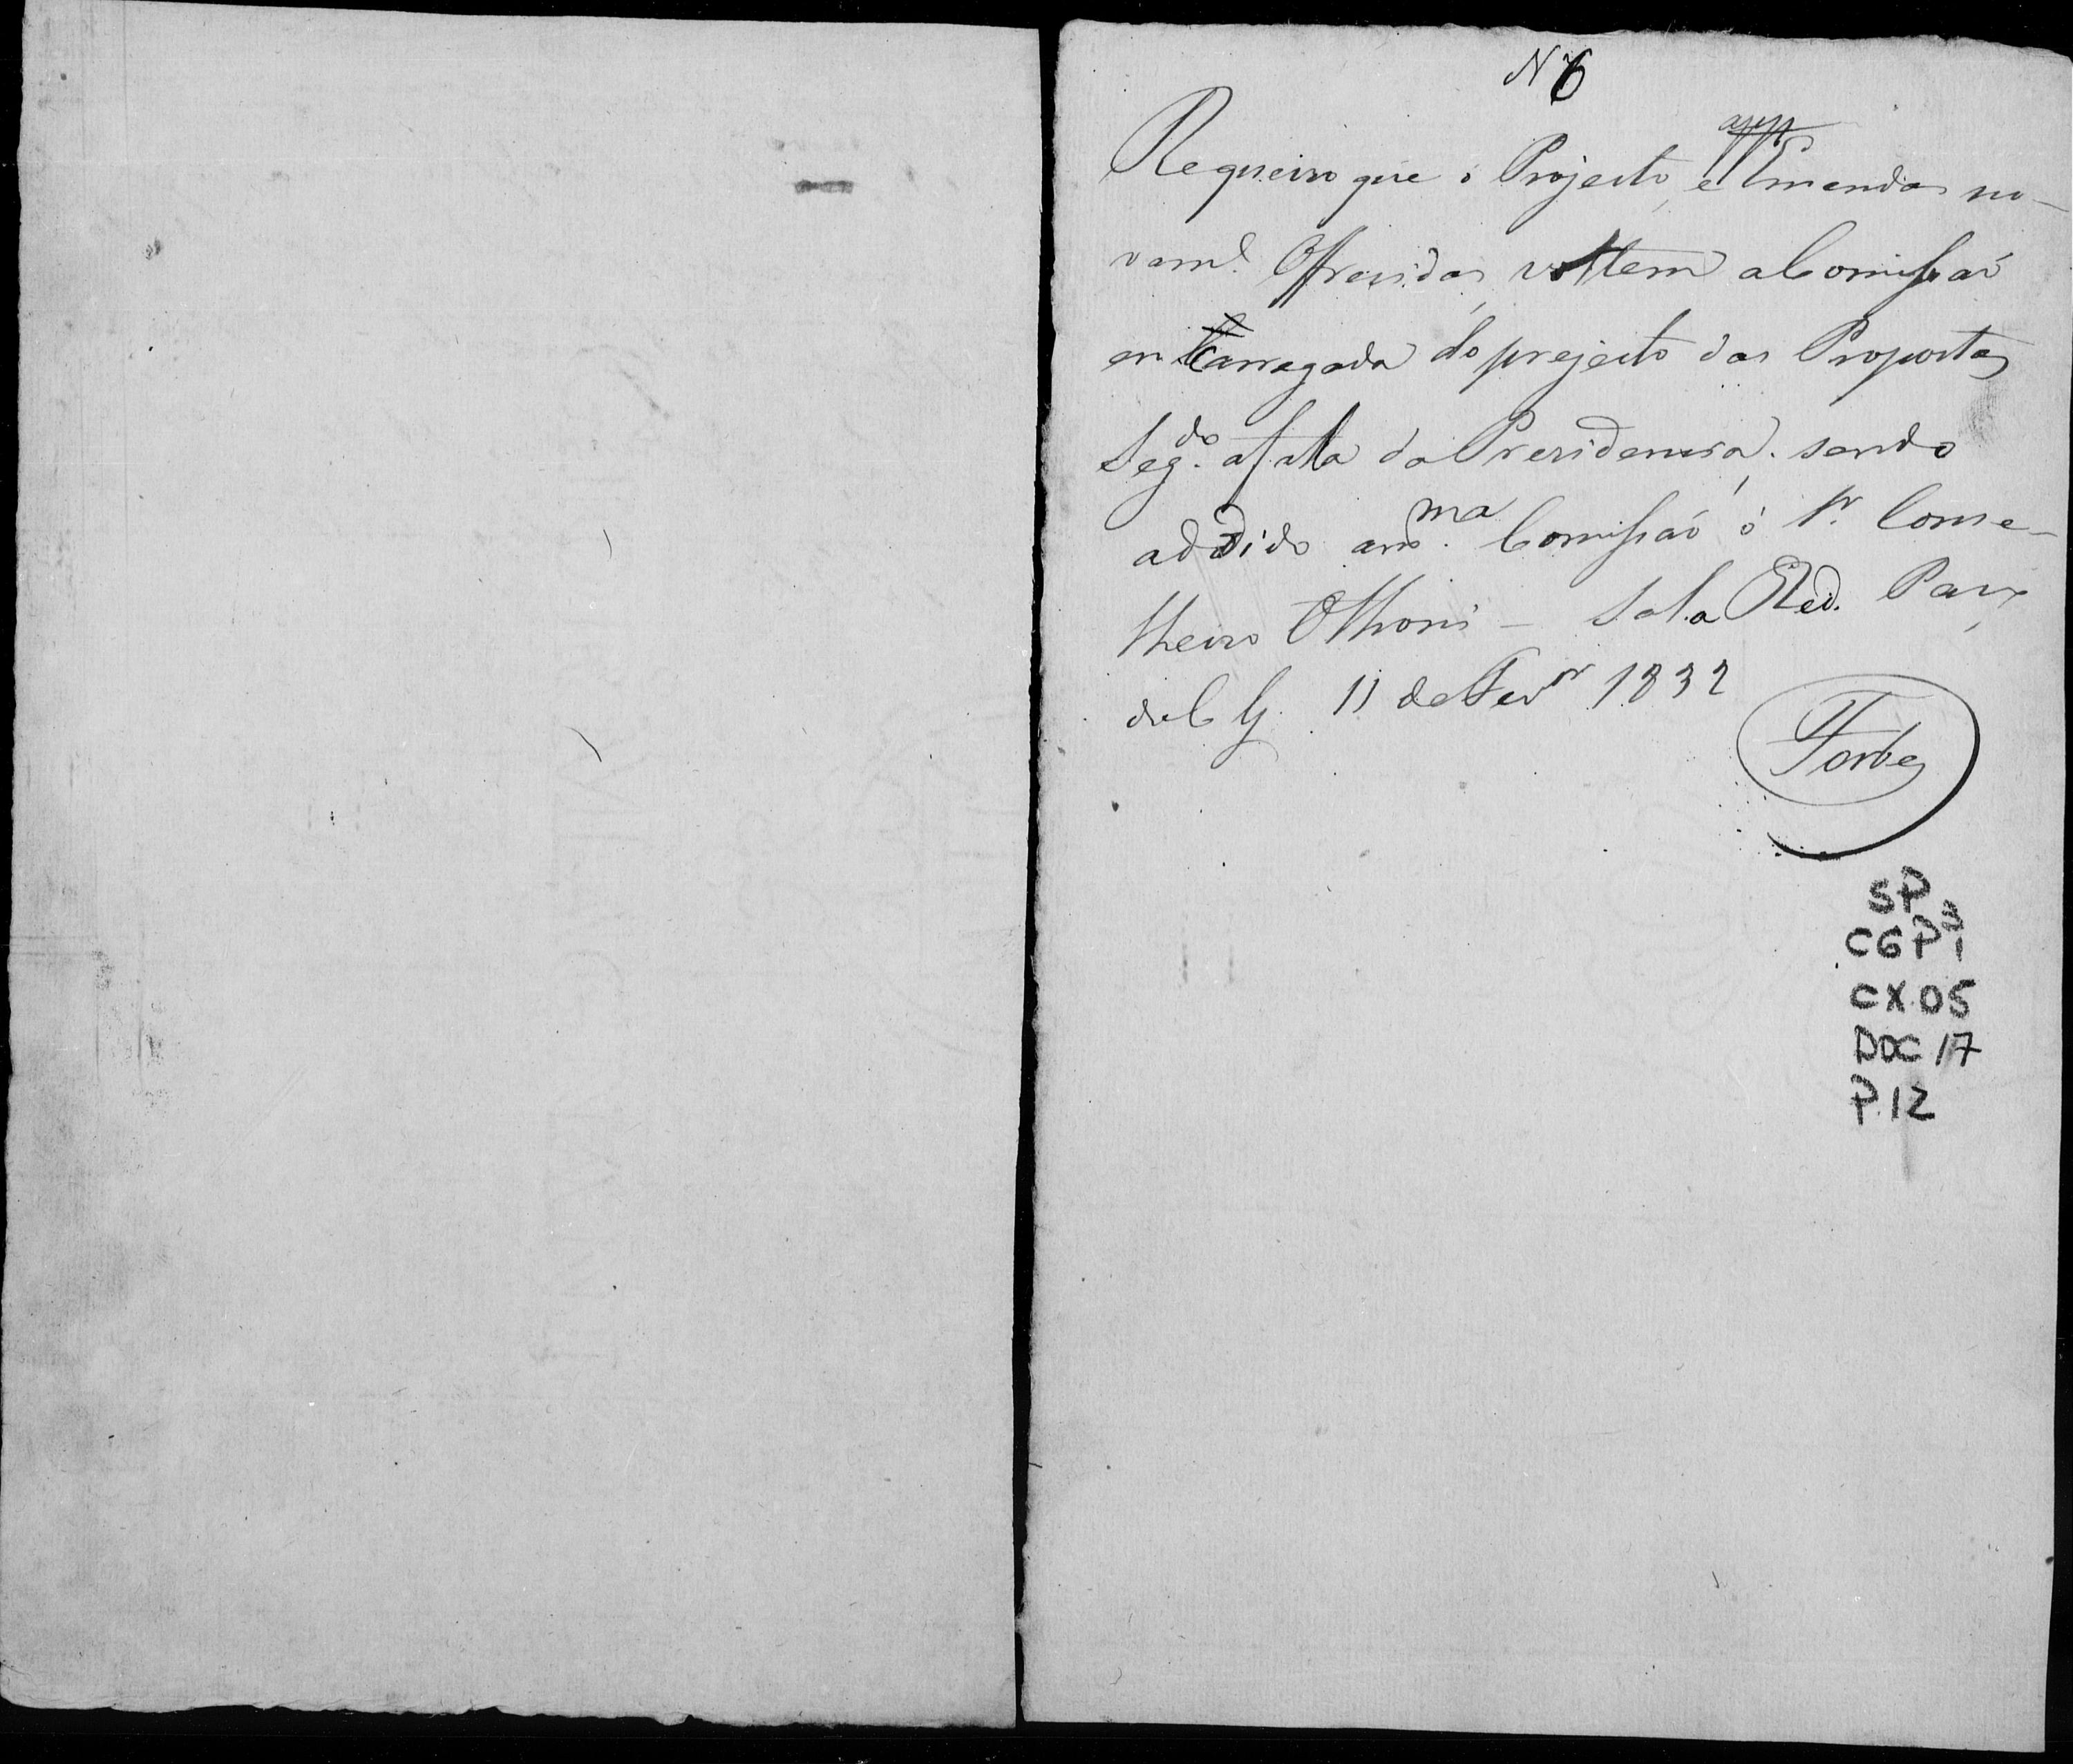 N 6
Requeiro que o Projecto, e Emendas no-
vam.e Offrecidas, voltem a Comissaó
encarregada do projecto das Propostas
Seg.do a fala da Prezidencia, sendo
addido a m.ma Comissaó ó Sr. Conse-
lheiro Ottoni - Sala Paço
do C G. 11 de Fevr 1832
Torres
SP
CGP 3
1
CX 05
DOC 17
P. 12